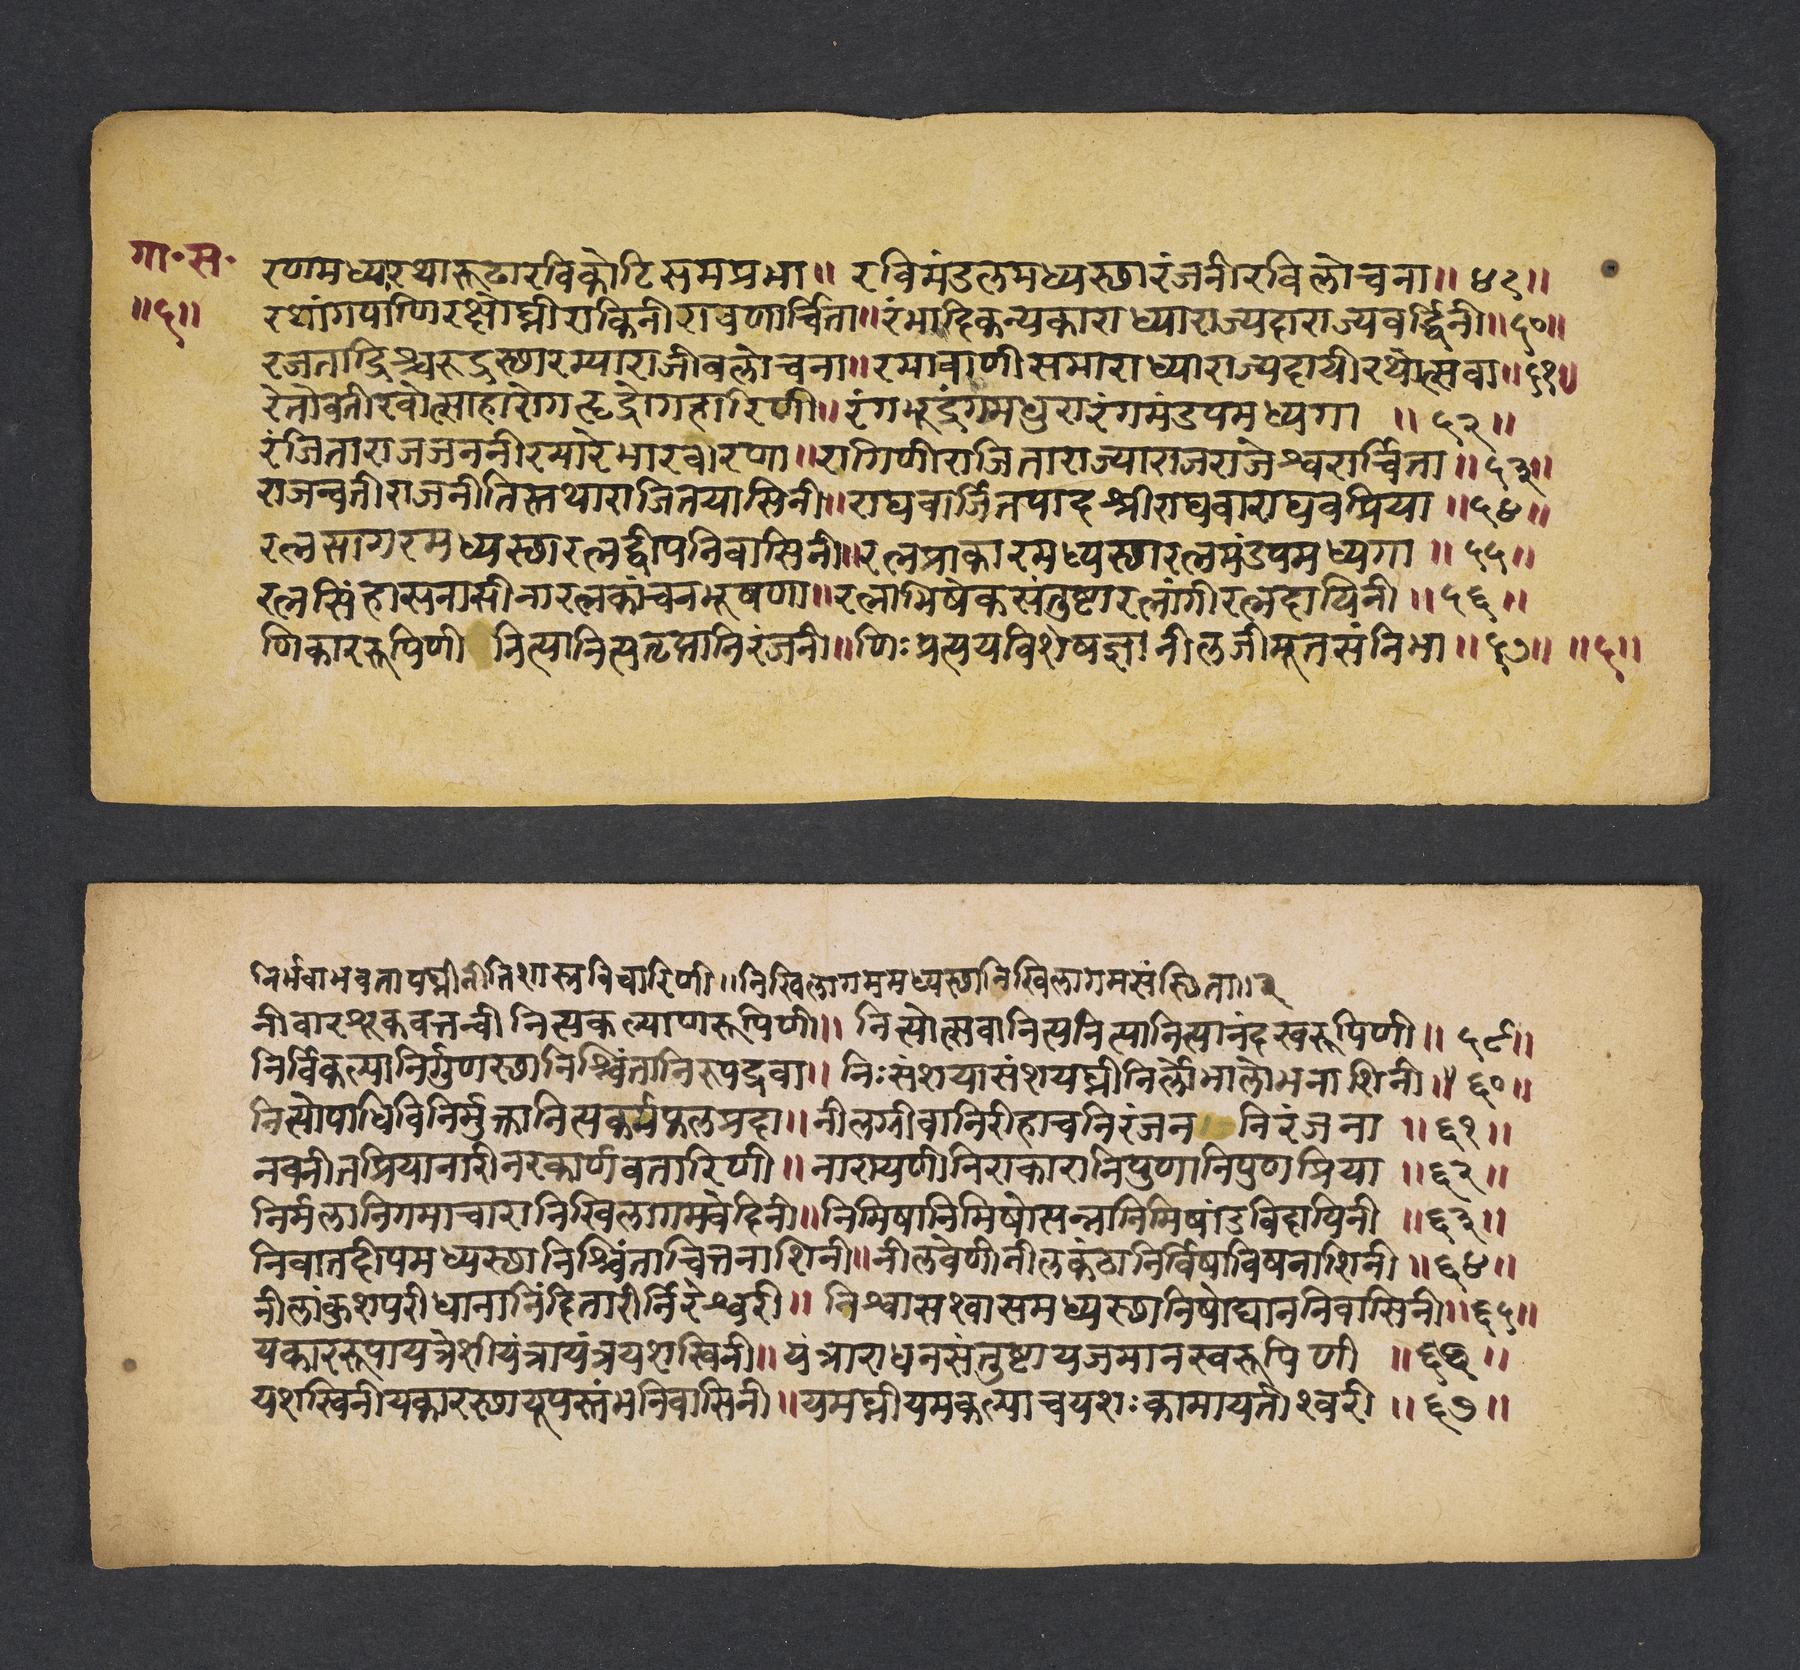 गा॰स॰
॥५॥
रणमध्यरथारूढारविकोटिसमप्रभा॥ रविमंडलमध्यस्छारंजनीरविलोचना॥ ४९॥
रथांगपाणिरक्षोघ्नीराकिनीरावणार्चिता॥रंभादिकन्यकाराध्याराज्यदाराज्यवर्द्धिनी॥५०॥
रजताद्रिश्चरूद्रस्छारम्याराजीवलोचना॥रमावाणीसमाराध्याराज्यदायीरथोत्सवा॥५१॥
रेतोवतीरवोत्साहारोगहृद्रोगहारिणी॥रंगभूद्रंगमधुरारंगमंडपमध्यगा ॥५२॥
रंजिताराजजननीरमारेभारवारणा॥रागिणीराजिताराज्याराजराजेश्वरार्चिता॥५३॥
राजन्वतीराजनीतिस्तथाराजितयासिनी॥राघवार्जितपादश्रीराघवाराघवप्रिया॥५४॥
रत्नसागरमध्यस्छारत्नद्वीपनिवासिनी॥रत्नप्राकारमध्यस्छारत्नमंडपमध्यगा॥५५॥
रत्नसिंहासनासीनारत्नकांचनभूषणा॥रत्नाभिषेकसंतुष्टारत्नांगीरत्नदायिनी॥५६॥
णिकाररूपिणी नित्यानित्यतृप्तानिरंजनी॥णिःप्रत्ययविशेषज्ञानीलजीमूतसंनिभा॥५७॥ ॥५॥
निर्भवाभवतापघ्नीनीतिशास्त्रविचारिणी॥निखिलागममध्यस्छानिखिलागमसंस्थिता॥२
नीवारशूकवत्तन्वी नित्यकल्याणरूपिणी॥ नित्योत्सवानित्यनित्यानित्यानंदस्वरूपिणी॥५९॥
निर्विकल्पानिर्गुणस्छानिश्चिंतानिरुपद्रवा॥ निःसंशयासंशयघ्नीनिर्लोभालोभनाशिनी॥६०॥
नित्योपाधिविनिर्मुक्तानित्यकर्मफलप्रदा॥नीलग्रीवानिरीहाचनिरंजन निरंजना ॥६१॥
नवनीतप्रियानारीनरकार्णवतारिणी॥नारायणीनिराकारानिपुणानिपुणप्रिया॥६२॥
निर्मलानिगमाचारानिखिलागमवेदिनी॥निमिषानिमिषोत्पन्नानिमिषांडविदायिनी॥६३॥
निवातदीपमध्यस्छानिश्चिंताचित्तनाशिनी॥नीलवेणीनीलकंठानिर्विषाविषनाशिनी॥६४॥
नीलांकुशपरीधानानिंदितारीर्निरेश्वरी॥ निश्वासश्वासमध्यस्छानिषोद्याननिवासिनी॥६५॥
यकाररूपायत्रेशीयंत्रायंत्रयशस्विनी॥यंत्राराधनसंतुष्टायजमानस्वरूपिणी ॥६६॥
यशस्विनीयकारस्छायूपस्तंभनिवासिनी॥यमघ्नीयमकल्पाचयशःकामायतीश्वरी॥६७॥